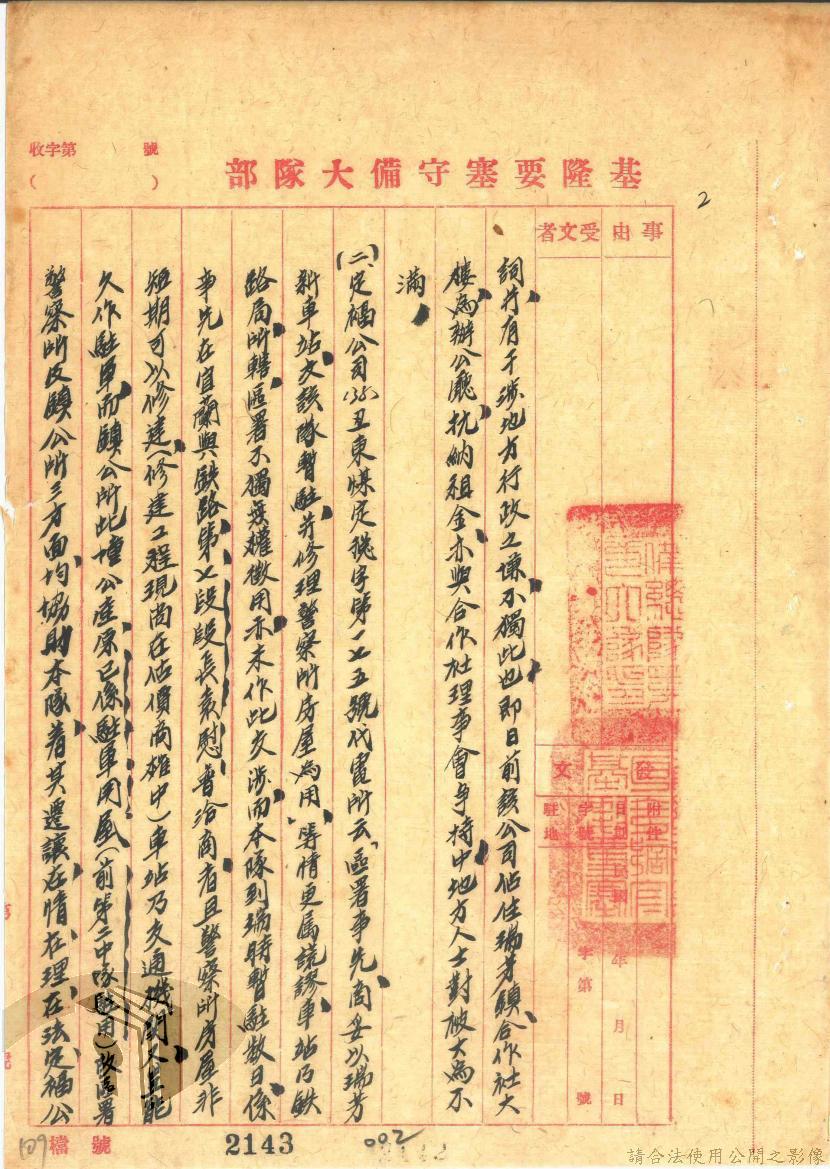 收字第 號
( )
基隆要塞守備大隊部
2
事由
受文者
發文
附件
日期 民國 年 月 日
字號 字第 號
駐地
詞并有干涉地方行政之嫌不獨此也即日前該公司佔住瑞芳鎮合作社大
樓為辦公廳抗納租金亦與合作社理事會爭持中地方人士對彼大為不
滿
(二)定福公司(35)丑東煤定總字第一七五號代電所云「區署事先商妥以瑞芳
新車站交該隊暫駐并修理警察所房屋為用」等情更屬謊謬車站乃鉄
路局所轄區署不獨無權徵用亦未作此交涉而本隊到瑞時暫駐数日係
事先在宜蘭與鉄路第七段段長袁慰普洽商者且警察所房屋非
短期可以修建(修建工程現尚在估價商確中)車站乃交通機関不宜能
久作駐軍而鎮公所此壇公產原已係駐軍用屋(前第二中隊駐用)故區署
警察所及鎮公所三方面均協助本隊着其遷讓在情在理在法定福公
109 檔號
2143
002
請合法使用公開之影像